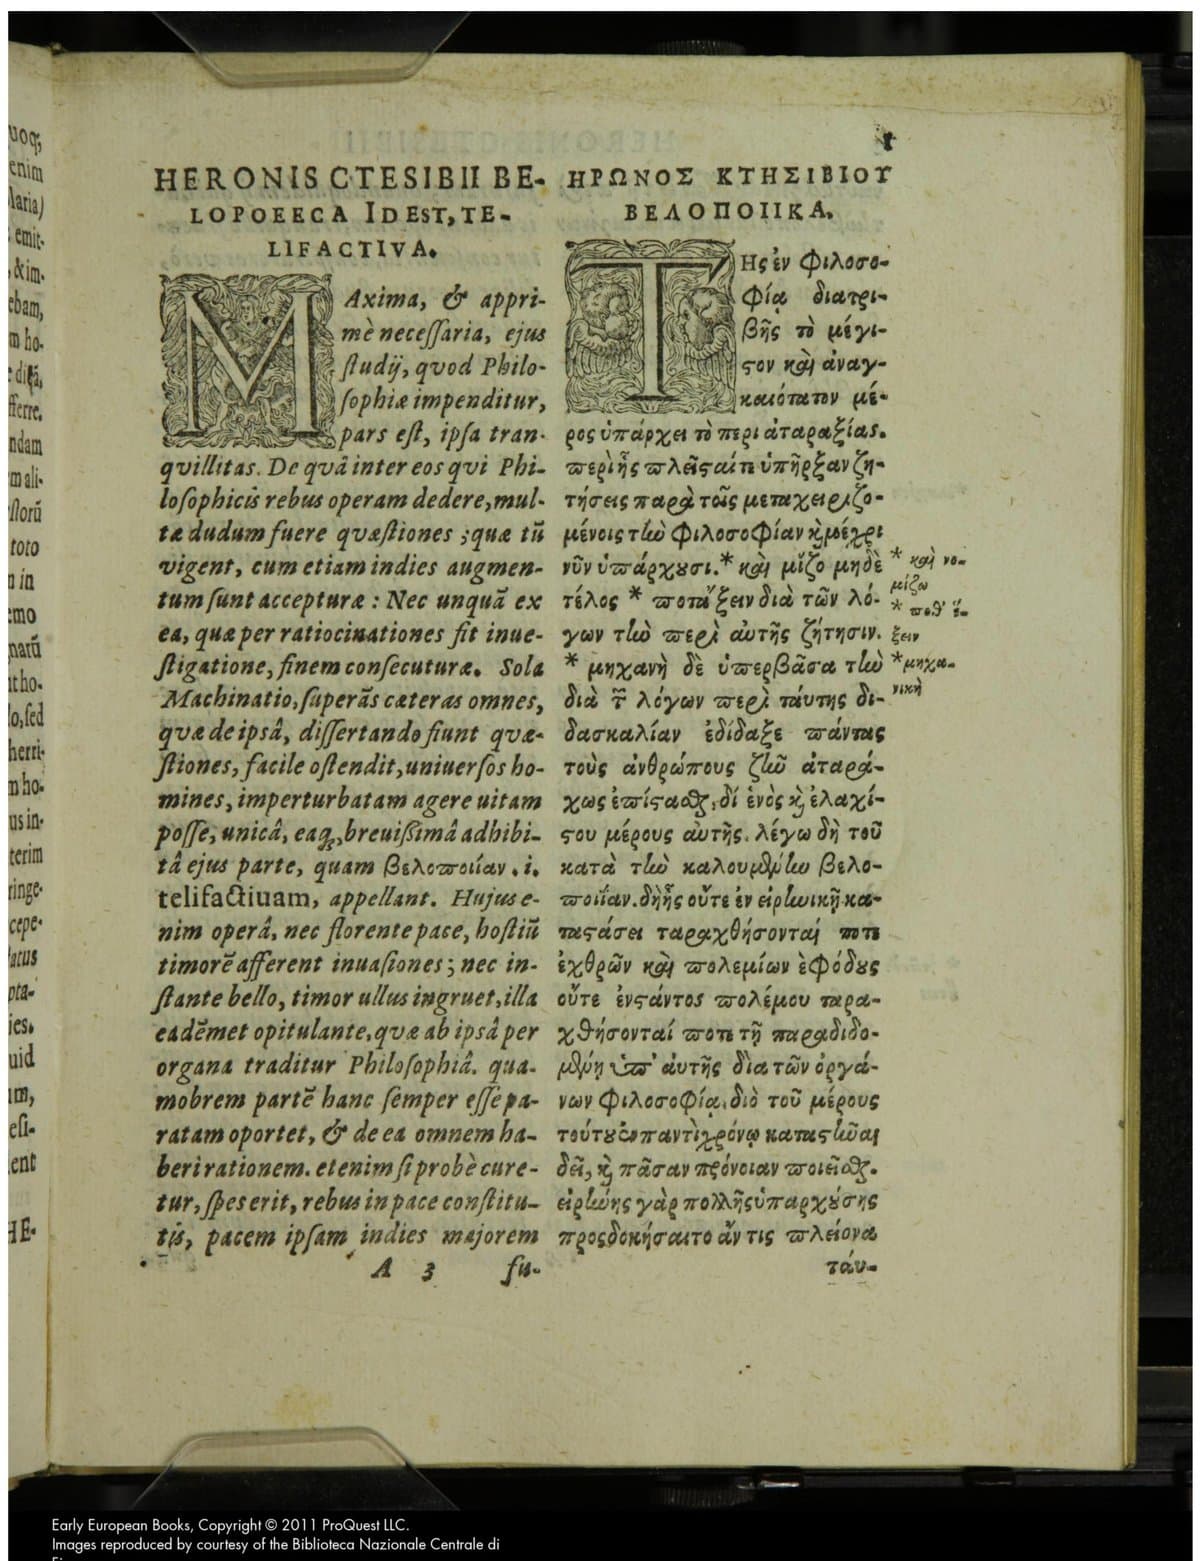 uoq;
enim
laria)
emit-
, & im-
ebam,
m ho-
fferre.
ndam
m ali-
toto
n in
emo
narũ
it ho-
lo, sed
herri-
n ho-
us in-
terim
ringe-
cepe-
pta-
ies.
uid
ım,
esi-
ent
HE-
HERONIS CTESIBII BE-
LOPOEECA IDEST, TE-
LIFACTIVA.
MAxima, & appri-
mè necessaria, ejus
studij, quod Philo-
sophiæ impenditur,
pars est, ipsa tran-
quillitas. De quâ inter eos qui Phi-
losophicis rebus operam dedere, mul-
tæ dudum fuere quæstiones ; quæ tũ
vigent, cum etiam indies augmen-
tum sunt accepturæ : Nec unquã ex
ea, quæ per ratiocinationes fit inue-
stigatione, finem consecuturæ. Sola
Machinatio, superãs cæteras omnes,
quæ de ipsâ, dissertando fiunt quæ-
stiones, facile ostendit, uniuersos ho-
mines, imperturbatam agere uitam
posse, unicâ, eaq;, breuissimâ adhibi-
tâ ejus parte, quam βελοποιίαν .i.
telifactiuam, appellant. Hujus e-
nim operâ, nec florente pace, hostiũ
timorẽ afferent inuasiones ; nec in-
stante bello, timor ullus ingruet, illa
eadẽmet opitulante, quæ ab ipsâ per
organa traditur Philosophiâ. qua-
mobrem partẽ hanc semper esse pa-
ratam oportet, & de ea omnem ha-
beri rationem. etenim si probè cure-
tur, spes erit, rebus in pace constitu-
tis, pacem ipsam indies majorem
A 3 fu-
ΗΡΩΝΟΣ ΚΤΗΣΙΒΙΟΥ
ΒΕΛΟΠΟΙΙΚΑ.
ΤΗς ἐν φιλοσο-
φίᾳ διατρι-
βῆς τὸ μέγι-
στον καὶ ἀναγ-
καιότατον μέ-
ρος ὑπάρχει τὸ περι ἀταραξίας.
περὶ ἧς πλεῖσται τε ὑπῆρξαν ζη-
τήσεις παρὰ τοῖς μεταχειριζο-
μένοις τὴν φιλοσοφίαν καὶ μέχρι
νῦν ὑπάρχουσι. * καὶ μίζο μηδὲ
τέλος * ποτὰ ἕξειν διὰ τῶν λό-
γων τὴν περὶ αὐτῆς ζήτησιν.
* μηχανὴ δὲ ὑπερβᾶσα τὴν
διὰ τῶν λόγων περὶ ταύτης δι-
δασκαλίαν ἐδίδαξε πάντας
τοὺς ἀνθρώπους ζῆν ἀταρά-
χως ἐπίστασθαι, δί ἑνὸς καὶ ἐλαχί-
στου μέρους αὐτῆς. λέγω δὴ τοῦ
κατὰ τὴν καλουμένην βελο-
ποιΐαν. δἰ ἧς οὔτε ἐν εἰρηνικῇ κα-
ταστάσει ταραχθήσονταί ποτε
ἐχθρῶν καὶ πολεμίων ἐφόδους
οὔτε ἐνστάντος πολέμου ταρα-
χθήσονταί ποτε τῇ παραδιδο-
μένῃ ὑπ' αὐτῆς διὰ τῶν ὀργά-
νων φιλοσοφίᾳ. διὸ τοῦ μέρους
τούτου ἐν παντὶ χρόνῳ κατηστῶαι
δεῖ, καὶ πᾶσαν πρόνοιαν ποιεῖσθαι.
εἰρήνης γὰρ πολλῆς ὑπαρχούσης
προςδοκήσαιτο ἄν τις πλείονα
ταύ-
* καὶ νο-
μίζω
* ποθ' ἕ-
ξειν
* μηχα-
νικὴ
Early European Books, Copyright © 2011 ProQuest LLC.
Images reproduced by courtesy of the Biblioteca Nazionale Centrale di